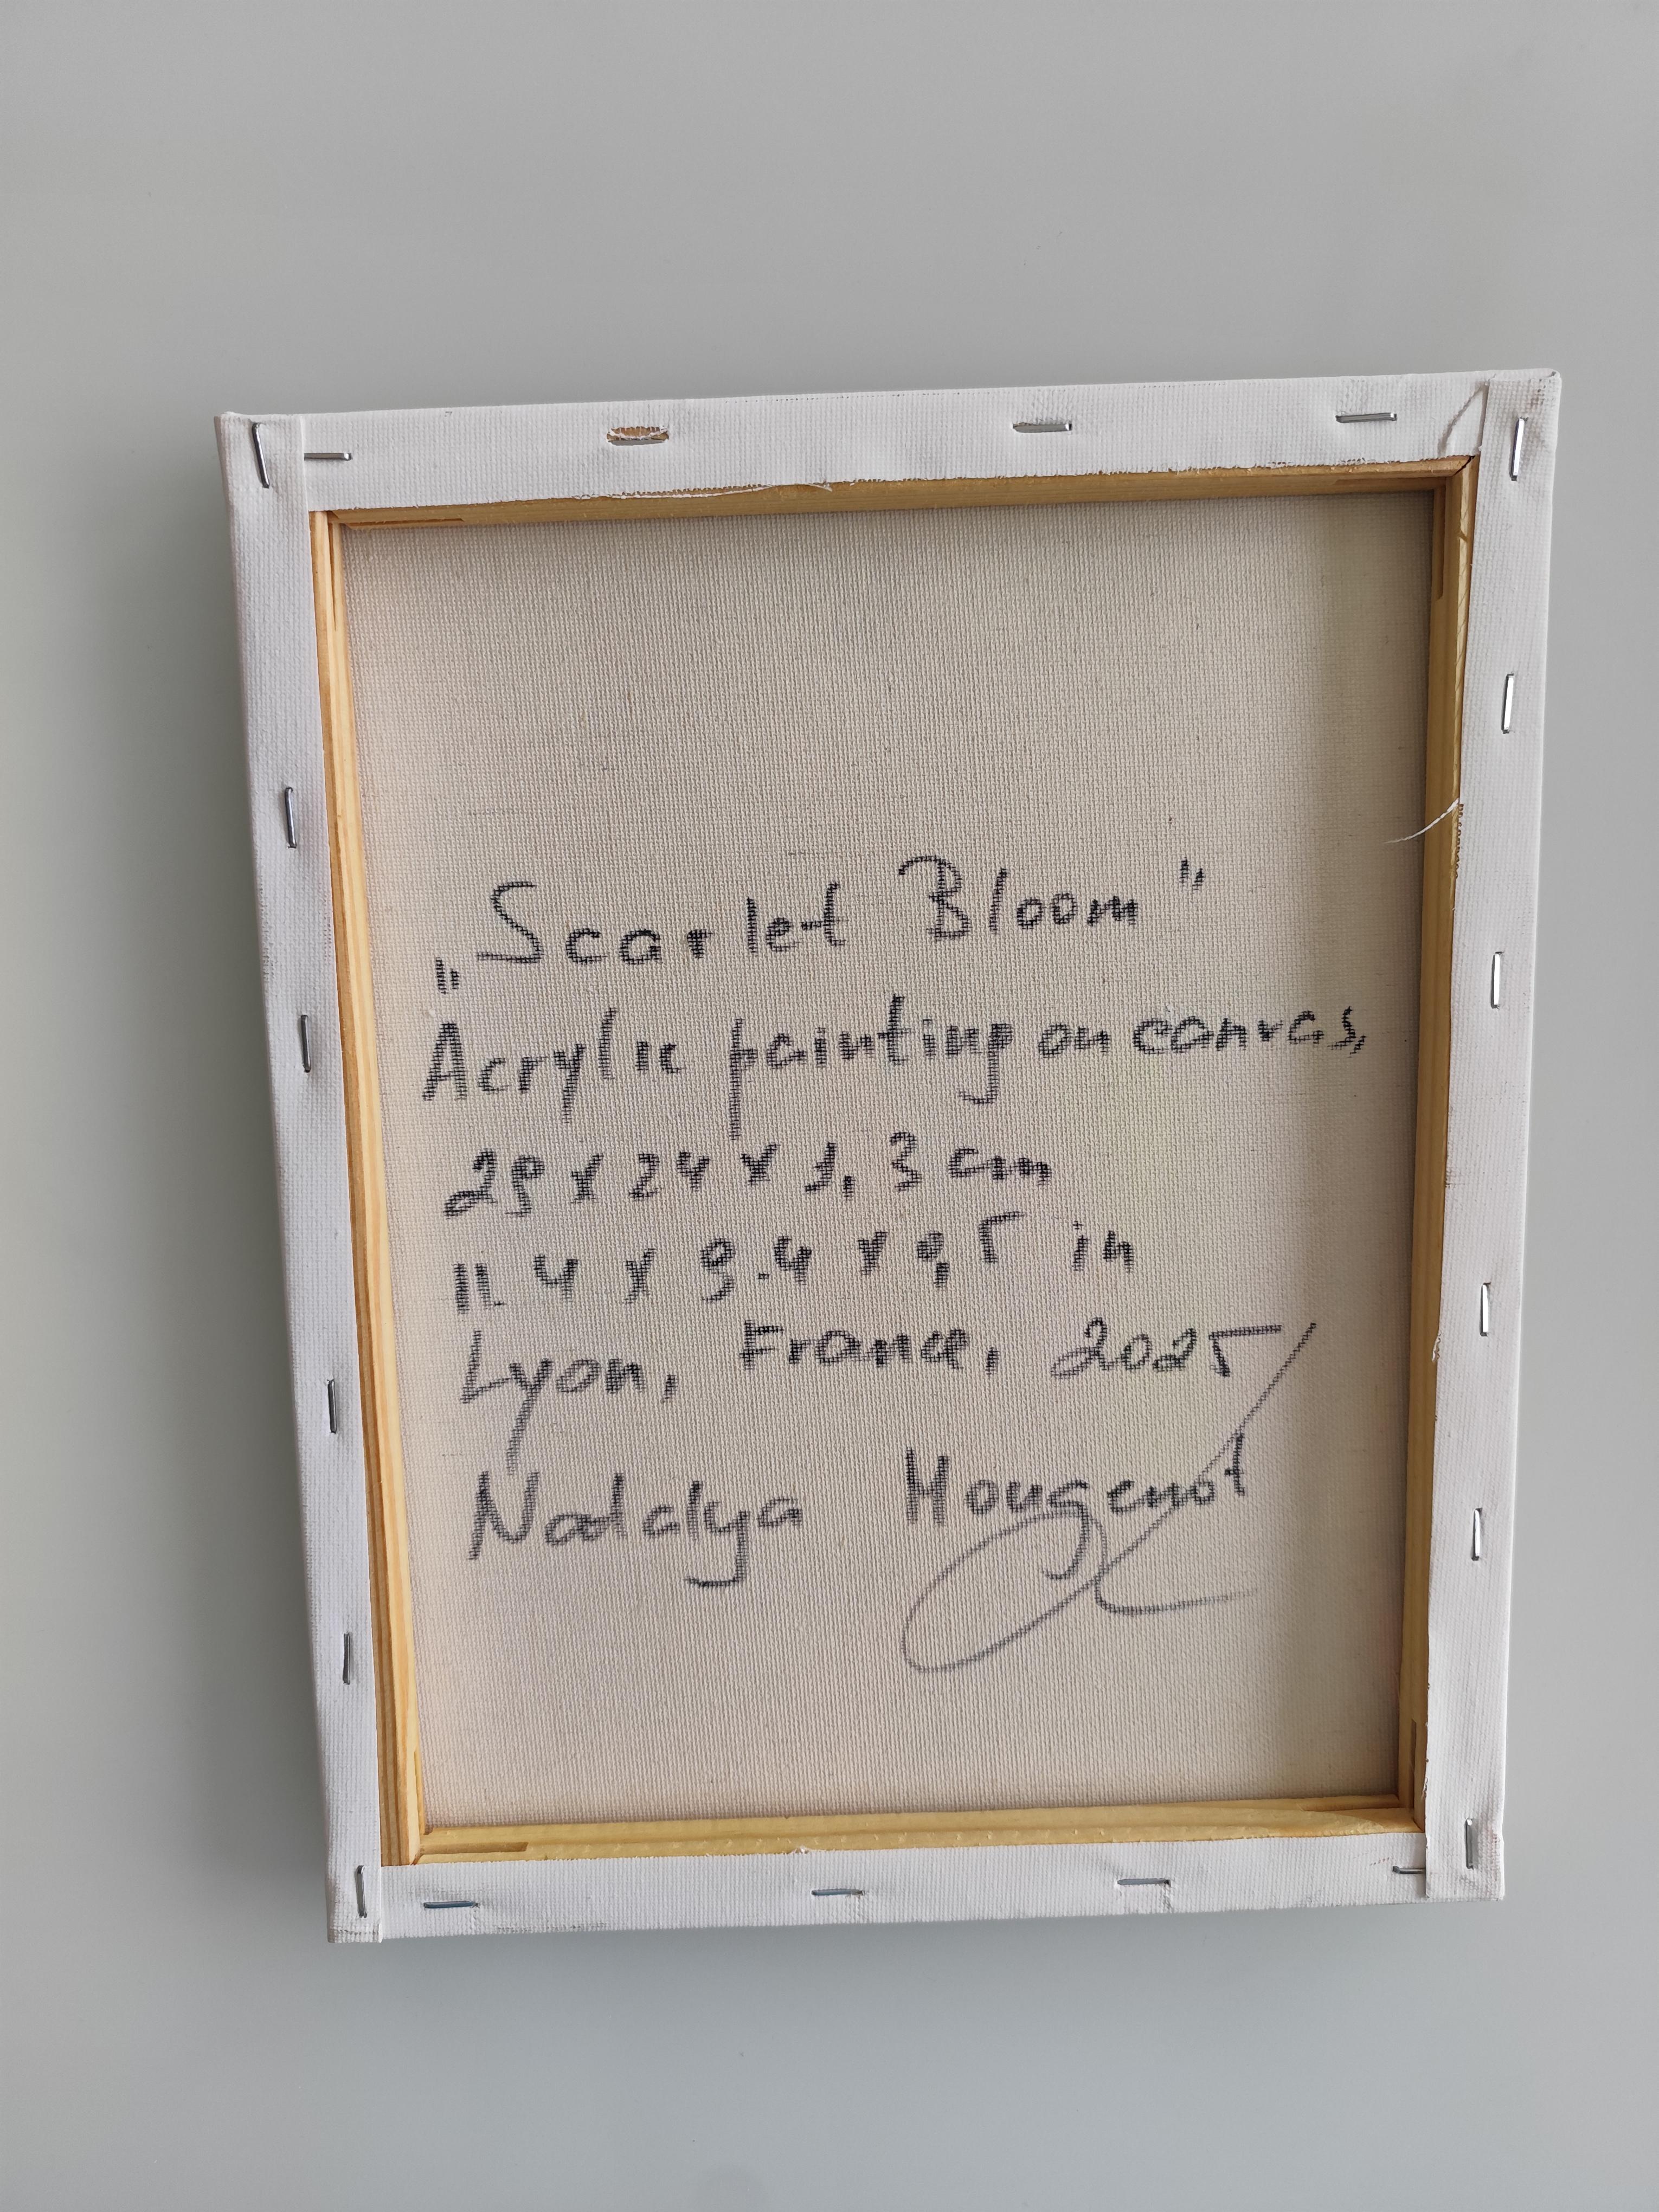 „Scarlet Bloom"
Acrylic painting on canvas,
29 x 24 x 1,3 cm
11.4 x 9.4 x 0,5 in
Lyon, France, 2025
Natalya Mougenot